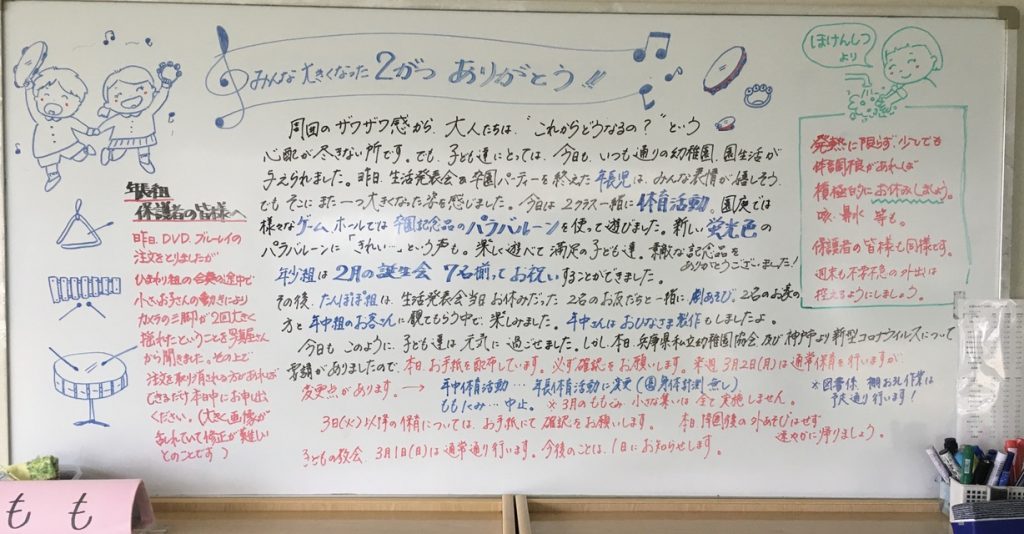 みんな大きくなった 2がつ ありがとう!!
周囲のザワザワ感から、大人たちは、"これからどうなるの?"という
心配が尽きない所です。でも、子ども達にとっては、今日も、いつも通りの幼稚園、園生活が
与えられました。昨日、生活発表会&卒園パーティーを終えた年長児は、みんな表情が嬉しそう、
でもそこにまた一つ大きくなった姿を感じました。今日は2クラス一緒に体育活動。園庭では
様々なゲーム、ホールでは卒園記念品のパラバルーンを使って遊びました。新しい蛍光色の
パラバルーンに「きれいー」という声も。楽しく遊べて満足の子ども達。素敵な記念品を
ありがとうございました!
年少組は2月の誕生会 7名揃ってお祝いすることができました。
その後、たんぽぽ組は、生活発表会当日お休みだった2名のお友だちと一緒に劇あそび。2名のお家の
方と年中組のお客さんに観てもらう中で、楽しみました。年中さんはおひなさま製作もしましたよ。
今日も このように、子ども達は元気に過ごせました。しかし、本日、兵庫県私立幼稚園協会及び神戸市より新型コロナウイルスについて
要請がありましたので、本日お手紙を配布しています。必ず確認をお願いします。来週3月2日(月)は通常保育を行いますが
変更点があります。→ 年中体育活動…年長体育活動に変更(園身体計測無し)
ももぐみ…中止。 ※3月のももぐみ、小さな集いは全て実施しません。
※図書係、棚お礼作業は
予定通り行います!
3日(火)以降の保育については、お手紙にて確認をお願いします。 本日降園後の外あそびはせず
速やかに帰りましょう。
子どもの教会、3月1日(日)は通常通り行います。今後のことは、1日にお知らせします。
年長組
保護者の皆様へ
昨日、DVD、ブルーレイの
注文をとりましたが
ひまわり組の合奏の途中で
小さいお子さんの動きにより
カメラの三脚が2回大きく
揺れたということを写真屋さん
から聞きました。その上で
注文を取り消される方があれば
できるだけ本日中にお申出
ください。(大きく画像が
乱れていて修正が難しい
とのことです)
ほけんしつ
より
発熱に限らず、少しでも
体調不良があれば
積極的にお休みしましょう。
咳、鼻水 等も。
保護者の皆様も同様です。
週末も不要不急の外出は
控えるようにしましょう。
も も